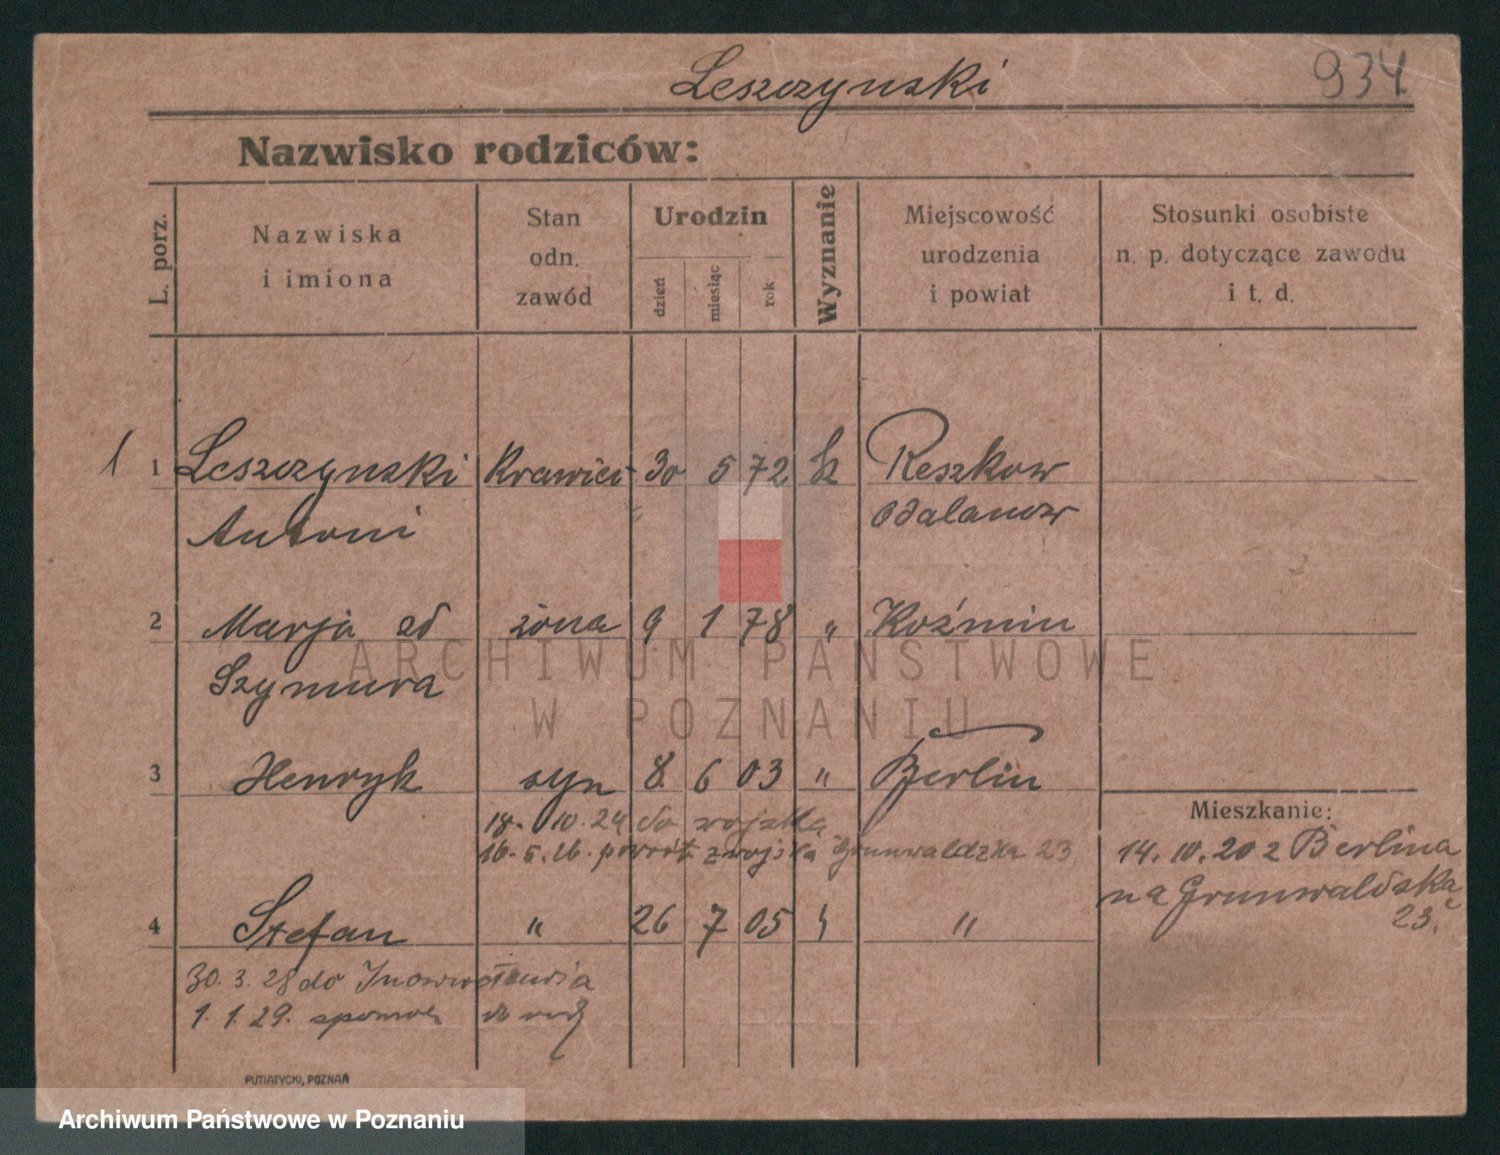 Leszczynski
934
Nazwisko rodziców:
L. porz.
Nazwiska
i imiona
Stan
odn.
zawód
Urodzin
dzień
miesiąc
rok
Wyznanie
Miejscowość
urodzenia
i powiat
Stosunki osobiste
n. p. dotyczące zawodu
i t. d.
1 1 Leszczynski Krawiec 30 5 72 Reszkow
Antoni Odalanow
2 Marja zd żona 9 1 78 " Koźmin
Szymura
3 Henryk syn 8. 6 03 " Berlin
18. 10. 24 do wojska
16. 5. 26. powrót z wojska Grunwaldzka 23
Mieszkanie:
14. 10. 20 z Berlina
na Grunwaldską
23.
4 Stefan " 26 7 05 "
30. 3. 28 do Inowrocławia
1. 1. 29. do
PUTIATYCKI, POZNAŃ
ARCHIWUM PAŃSTWOWE
W POZNANIU
Archiwum Państwowe w Poznaniu